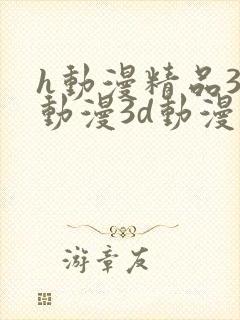 h動漫精品3
動漫3d動漫
游章友